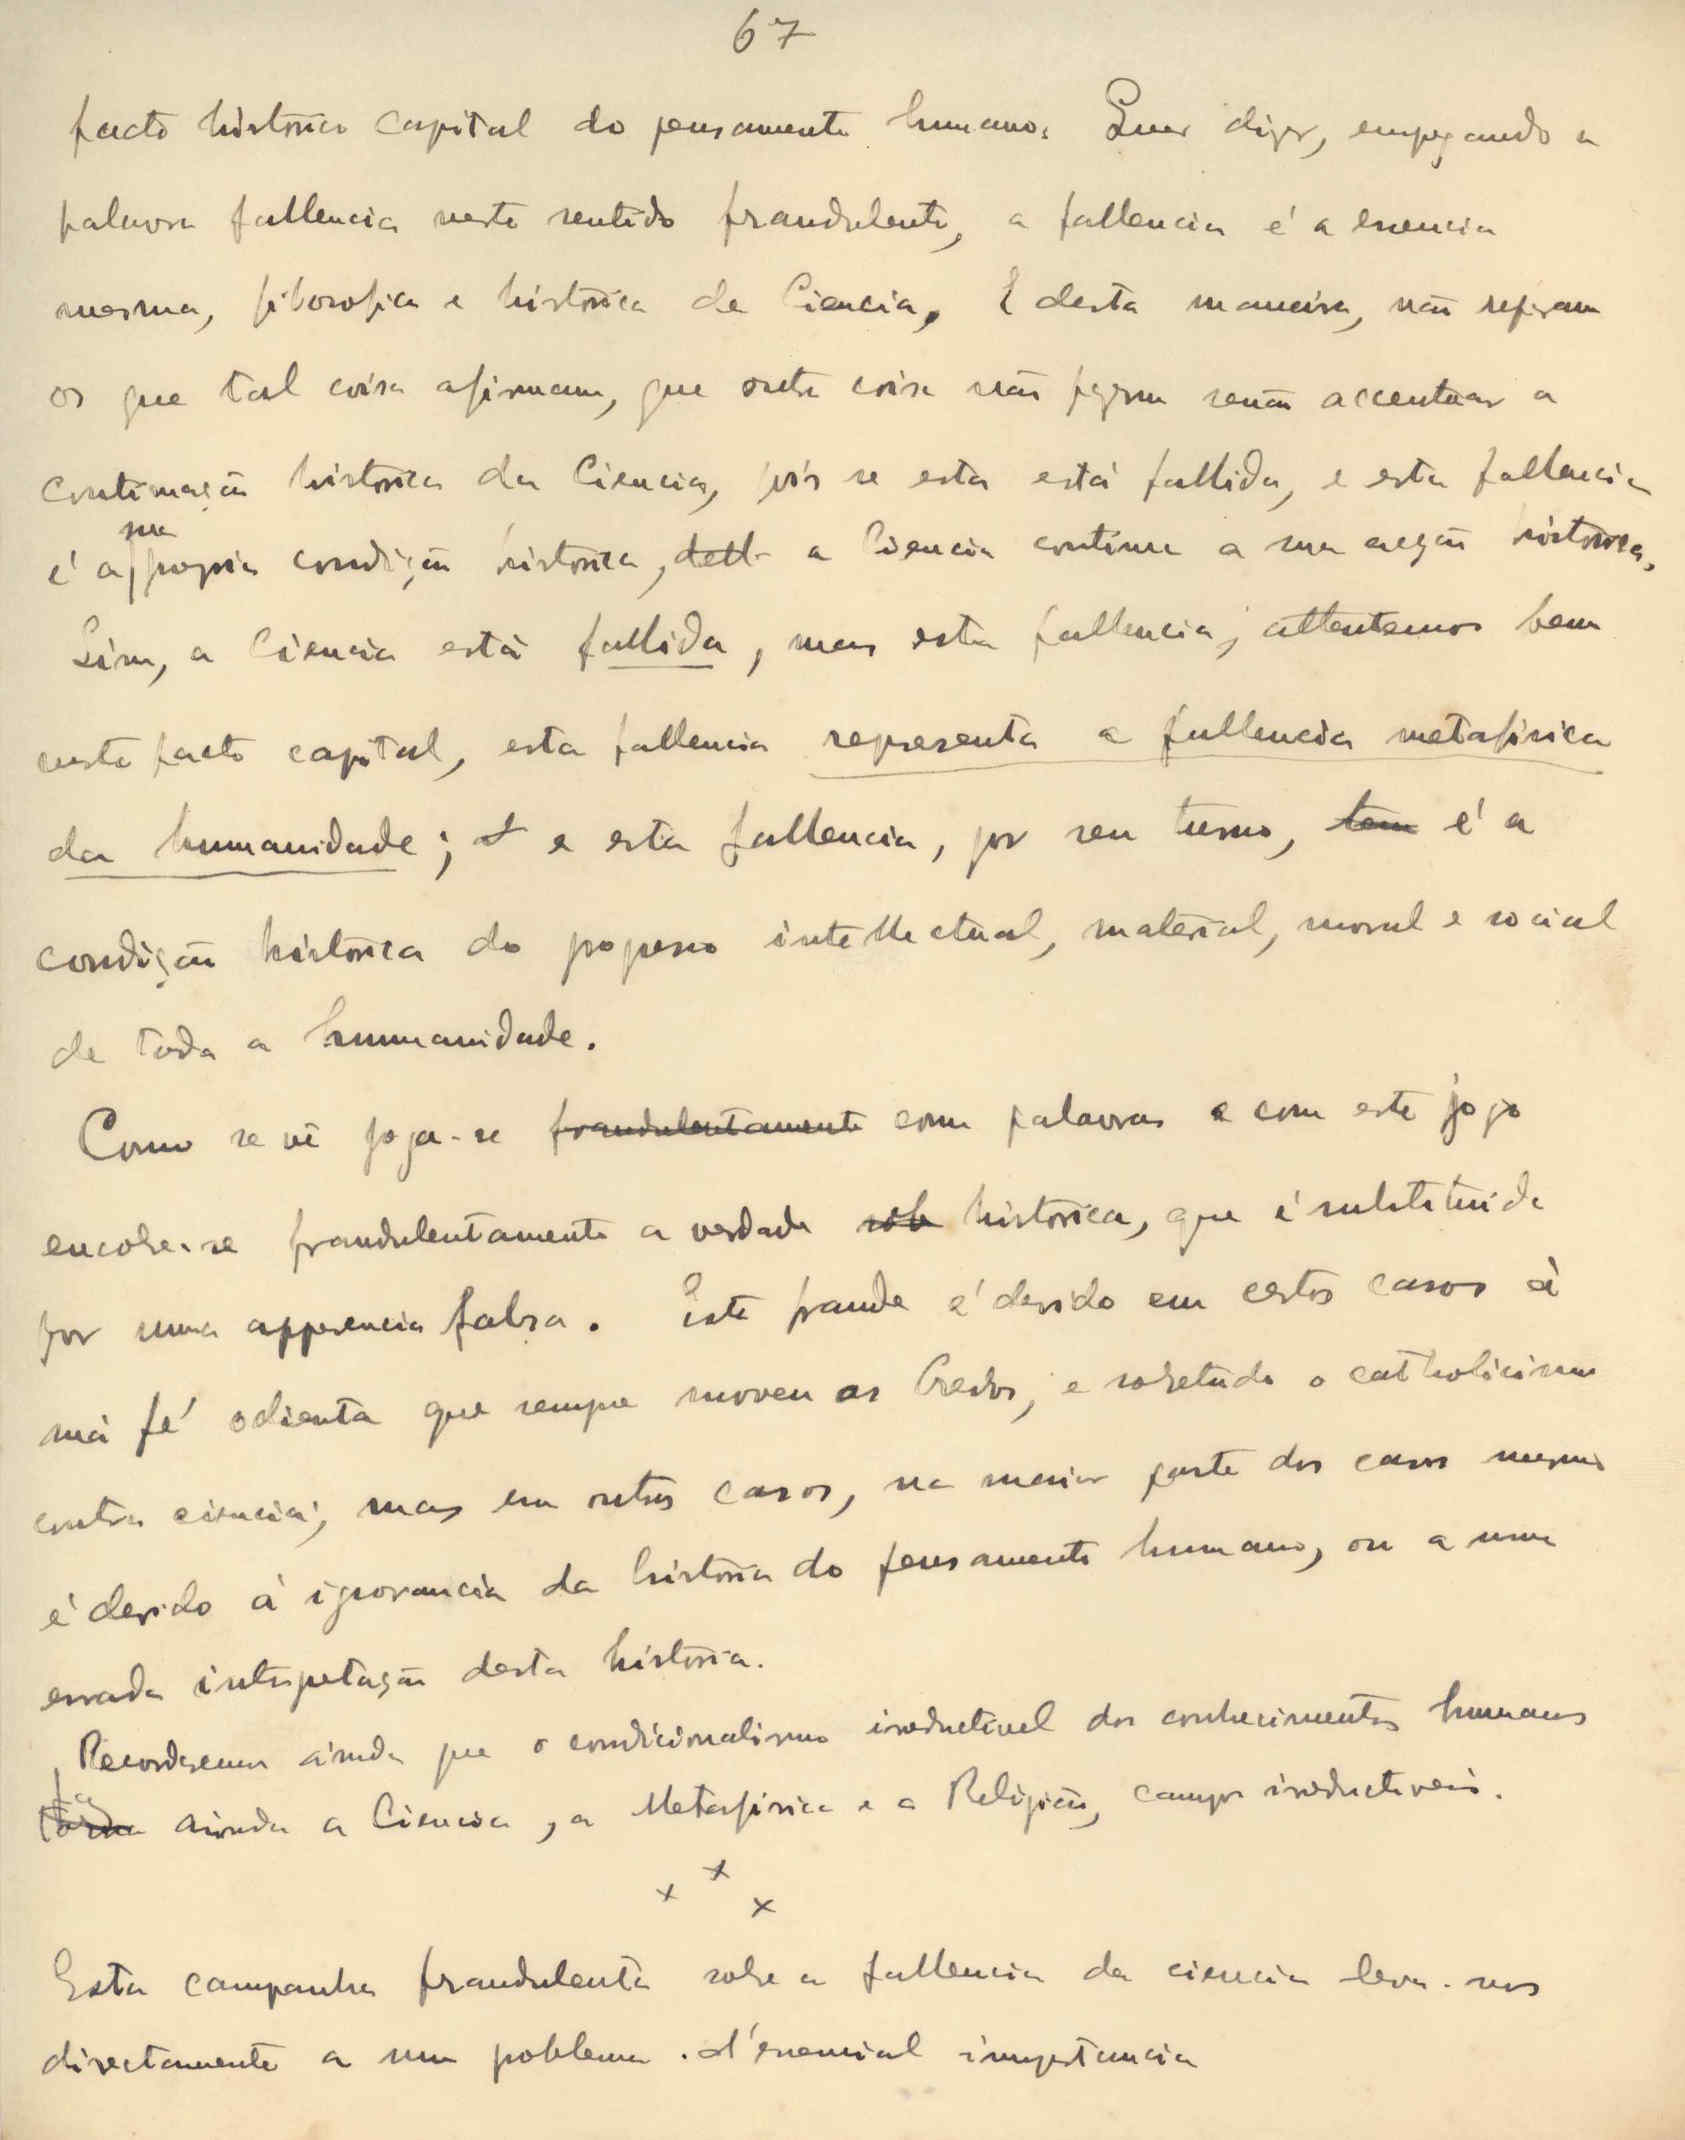 67
facto historico capital do pensamento humano. Quer dizer, empregando a
palavra fallencia neste sentido fraudulento, a fallencia é a essencia
mesma, filosofica e historica de Ciencia. E desta maneira, não reparam
os que tal coisa afirmam, que outra coisa não fazem senão accentuar a
continuação historica da Ciencia, pois se esta está fallida, e esta fallencia
é a sua propria condição historica, a Ciencia continua a sua acção historica.
Sim, a Ciencia está fallida, mas esta fallencia, attentemos bem
neste facto capital, esta fallencia representa a fallencia metafisica
da humanidade; e esta fallencia, por seu turno, tem é a
condição historica do progresso intellectual, material, moral e social
de toda a humanidade.
Como se vê joga-se fraudulentamente com palavras e com este jogo
encobre-se fraudulentamente a verdade sob historica, que é substituida
por uma apparencia falsa. Esta fraude é devido em certos casos á
má fé odienta que sempre moveu os Credos, e sobretudo o catholicismo
contra ciencia; mas em outros casos, na maior parte dos casos mesmo
é devido á ignorancia da historia do pensamento humano, ou a uma
errada interpretação desta historia.
Recordaremos ainda que o condicionalismo irreductivel dos conhecimentos humanos
faz ainda a Ciencia, a Metafisica e a Religião, campos irreductiveis.
x x x
Esta campanha fraudulenta sobre a fallencia da ciencia leva-nos
directamente a um poblema d'essencial importancia